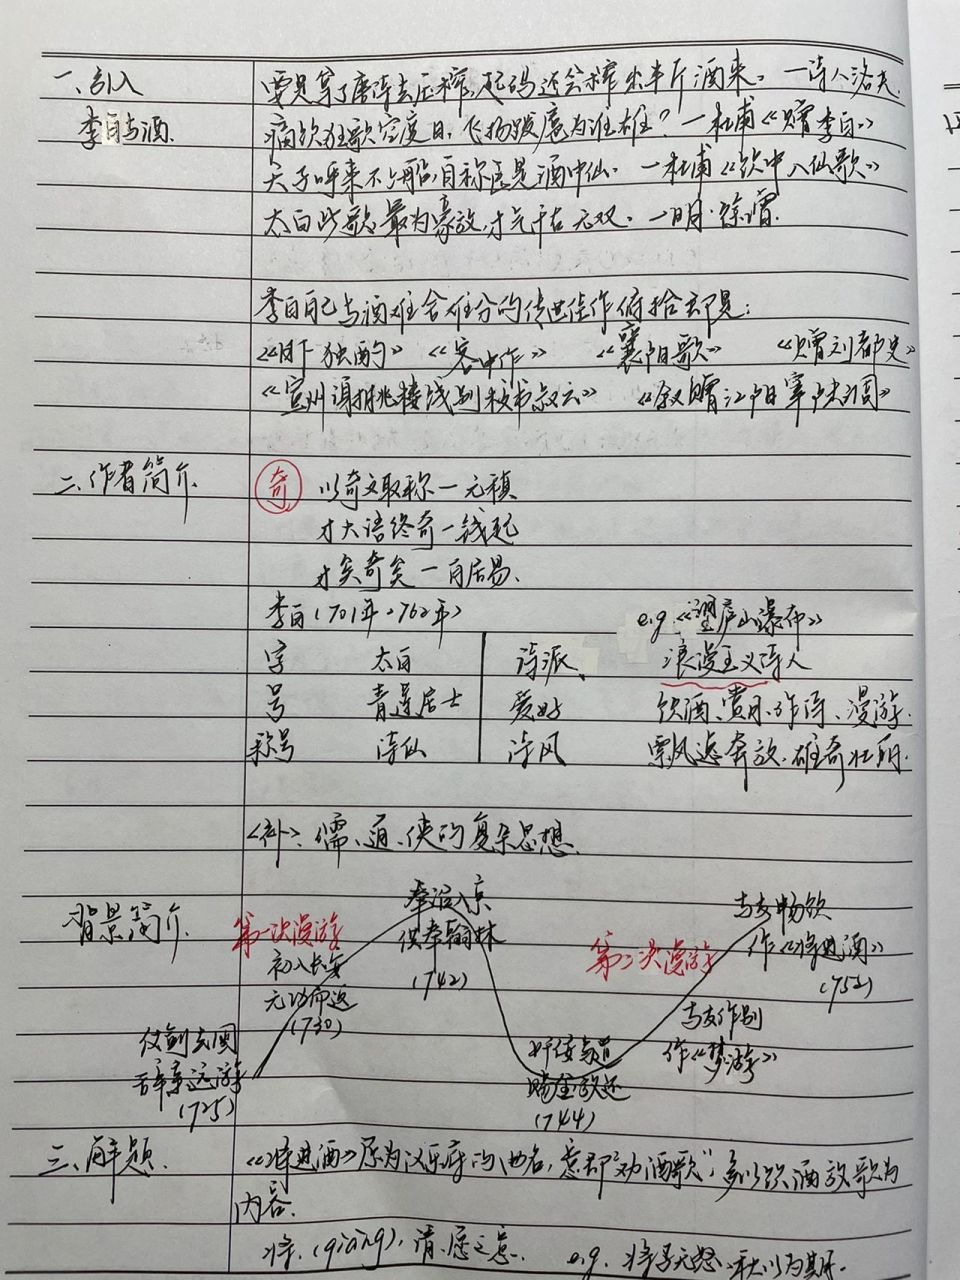 一、引入
李白与酒.
要是拿了唐诗去压榨,起码还会榨出半斤酒来。—诗人洛夫.
痛饮狂歌空度日,飞扬跋扈为谁雄?—杜甫《赠李白》
天子呼来不上船,自称臣是酒中仙.—杜甫《饮中八仙歌》
太白此歌,最为豪放,才气千古无双.—明·徐增.
李白自己与酒难舍难分的传世佳作俯拾即是:
《月下独酌》 《客中作》 《襄阳歌》 《赠刘都史》
《宣州谢朓楼饯别校书叔云》 《叙赠江阳宰陆调》
二、作者简介.
奇 以奇文取称—元稹
才大语终奇—钱起
才矣奇矣—白居易.
李白(701年-762年) e.g《望庐山瀑布》
字 太白 诗派、 浪漫主义诗人
号 青莲居士 爱好 饮酒、赏月、作诗、漫游.
称号 诗仙 诗风 飘逸奔放.雄奇壮丽.
<补>、儒、道、侠的复杂思想.
背景简介.
仗剑去国
辞亲远游
(725)
第一次漫游
初入长安
无功而返
(730)
奉诏入京
供奉翰林
(742)
奸佞当道
赐金放还
(744)
第二次漫游
与友作别
作《梦游》
与友畅饮
作《将进酒》
(752)
三、解题.
《将进酒》原为汉乐府的曲名,意即"劝酒歌",多以饮酒放歌为
内容.
将.(qiāng),请.愿之意. e.g.将子无怒.秋以为期.